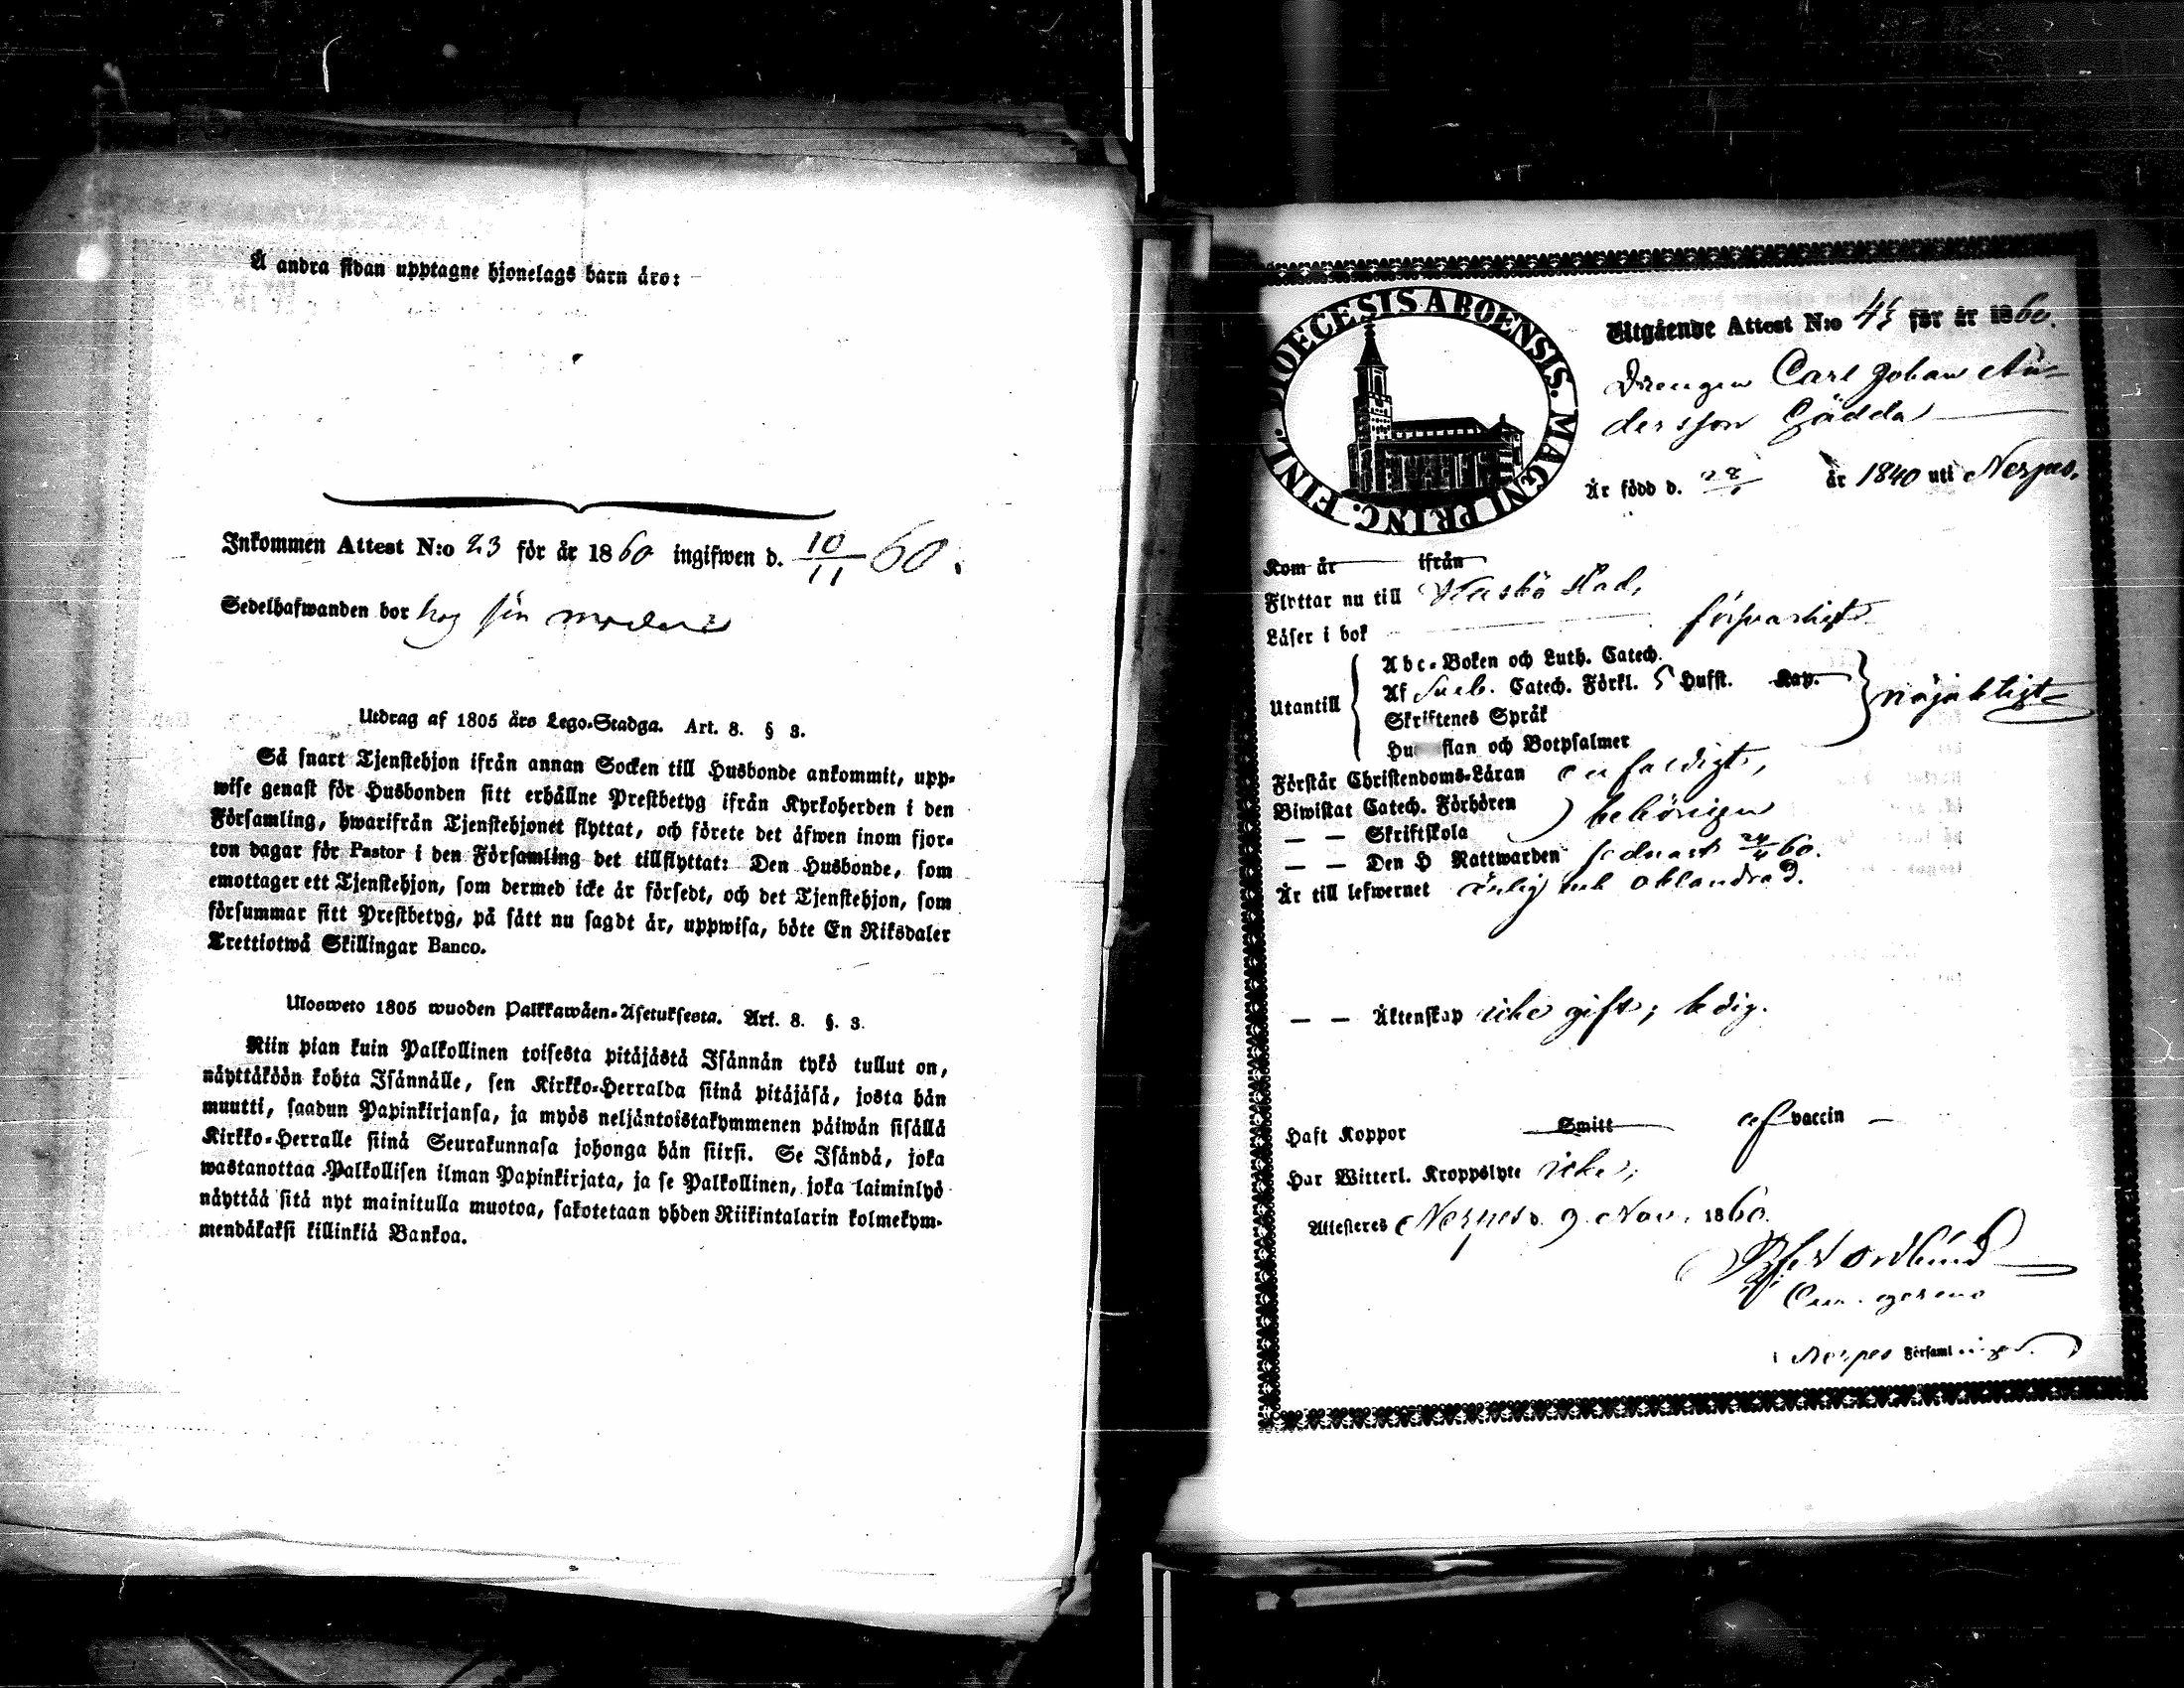 Å andra sidan upptagne hjonelags barn äro:
Inkommen Attest N:o 23 för år 1860 ingifwen d. 10/11 60.
Sedelhafwanden bor hos sin moder
Utdrag af 1805 års Lego-Stadga. Art. 8. § 3.
Så snart Tjenstehjon ifrån annan Socken till Husbonde ankommit, upp-
wise genast för Husbonden sitt erhållne Prestbetyg ifrån Kyrkoherden i den
Församling, hwarifrån Tjenstehjonet flyttat, och förete det äfwen inom fjor-
ton dagar för Pastor i den Församling det tillflyttat: Den Husbonde, som
emottager ett Tjenstehjon, som dermed icke är försedt, och det Tjenstehjon, som
försummar sitt Prestbetyg, på sätt nu sagdt är, uppwisa, böte En Riksdaler
Trettiotwå Skillingar Banco.
Ulosweto 1805 wuoden Palkkawäen-Asetuksesta. Art. 8. §. 3.
Niin pian kuin Palkollinen toisesta pitäjästä Isännän tykö tullut on,
näyttäköön kohta Isännälle, sen Kirkko-Herralda siinä pitäjäsä, josta hän
muutti, saadun Papinkirjansa, ja myös neljäntoistakymmenen päiwän sisällä
Kirkko-Herralle siinä Seurakunnasa johonga hän siirsi. Se Isändä, joka
wastanottaa Palkollisen ilman Papinkirjata, ja se Palkollinen, joka laiminlyö
näyttää sitä nyt mainitulla muotoa, sakotetaan yhden Riikintalarin kolmekym-
mendäkaksi killinkiä Bankoa.
DIOECESIS ABOENSIS. MAGNI PRINC. FINL.
Utgående Attest N:o för år 1860.
Drengen Carl Johan An-
dersson Gädda
Är född d. 28/1 år 1840 uti Nerpes.
Kom år ifrån
Flyttar nu till Kaskö stad,
Läser i bok försvarligt
Abc-Boken och Luth. Catech.
Utantill Af Sveb. Catech. Förkl. 5 Hufst. Kap. nöjaktigt
Skriftenes Språk
Hu flan och Botpsalmer
Förstår Christendoms-Läran enfaldigt,
Biwistat Catech. Förhören behörigen
— — Skriftskola
— — Den H Nattwarden sednast 24/6 60.
Är till lefwernet ärlig och oklandrad.
— — Äktenskap icke gift; ledig.
Haft Koppor Smitt af vaccin —
Har Witterl. Kroppslyte icke;
Attesteras Nerpes d. 9 Nov. 1860.
Nordlund
Nerpes Församl